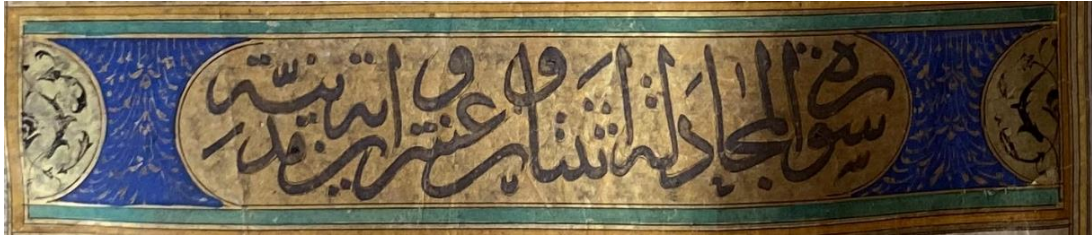 سورة المجادلة اثنتان وعشرون اية مدنية